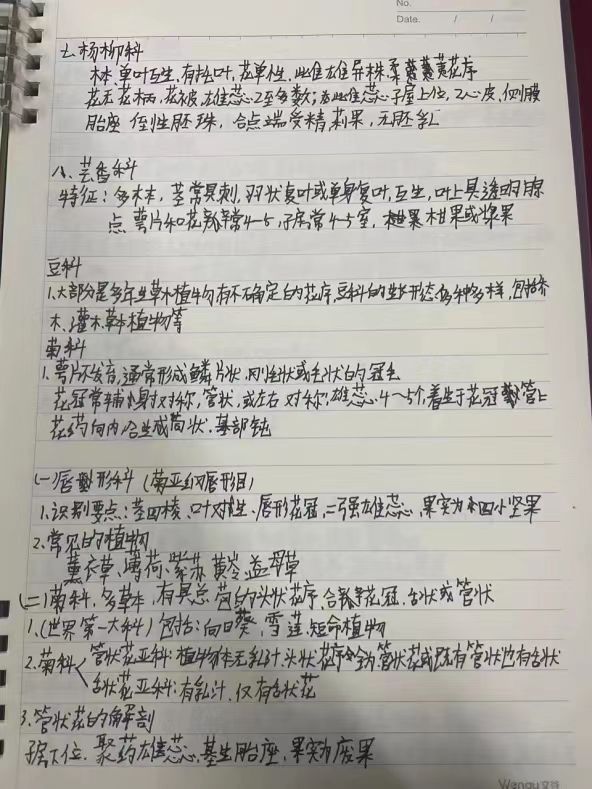 No.
Date. / /
七 杨柳科
木本,单叶互生,有托叶,花单性,雌雄异株,柔荑花序
花无花柄,花被,雄蕊2至多数;雌蕊子房上位,2心皮,侧膜
胎座 倒生胚珠,合点端受精 蒴果,无胚乳
八、芸香科
特征:多木本,茎常具刺,羽状复叶或单身复叶,互生,叶上具透明腺
点 萼片和花瓣常4-5,子房常4-5室,柑果或浆果
豆科
1.大部分是多年生草本植物,有不确定的花序,豆科的形态多种多样,包括乔
木、灌木、草本植物等
菊科
1.萼片不发育,通常形成鳞片状,刚毛状或毛状的冠毛
花冠常辅射对称,管状,或左右对称,雄蕊.4~5个,着生于花冠管上
花药向内合生成筒状,基部钝
(一)唇形科(菊亚纲唇形目)
1.识别要点:茎四棱、叶对生、唇形花冠,二强雄蕊,果实为四小坚果
2.常见的植物
薰衣草、薄荷、紫苏、黄岑、益母草
(二)菊科,多草本,有具总苞的头状花序,合瓣花冠,舌状或管状
1.(世界第一大科)包括:向日葵,雪莲,短命植物
2.菊科 管状花亚科:植物体无乳汁,头状花序全为管状花或既有管状也有舌状
舌状花亚科:有乳汁,仅有舌状花
3.管状花的解剖
子房下位、聚药雄蕊,基生胎座,果实为瘦果
Wengu 文谷